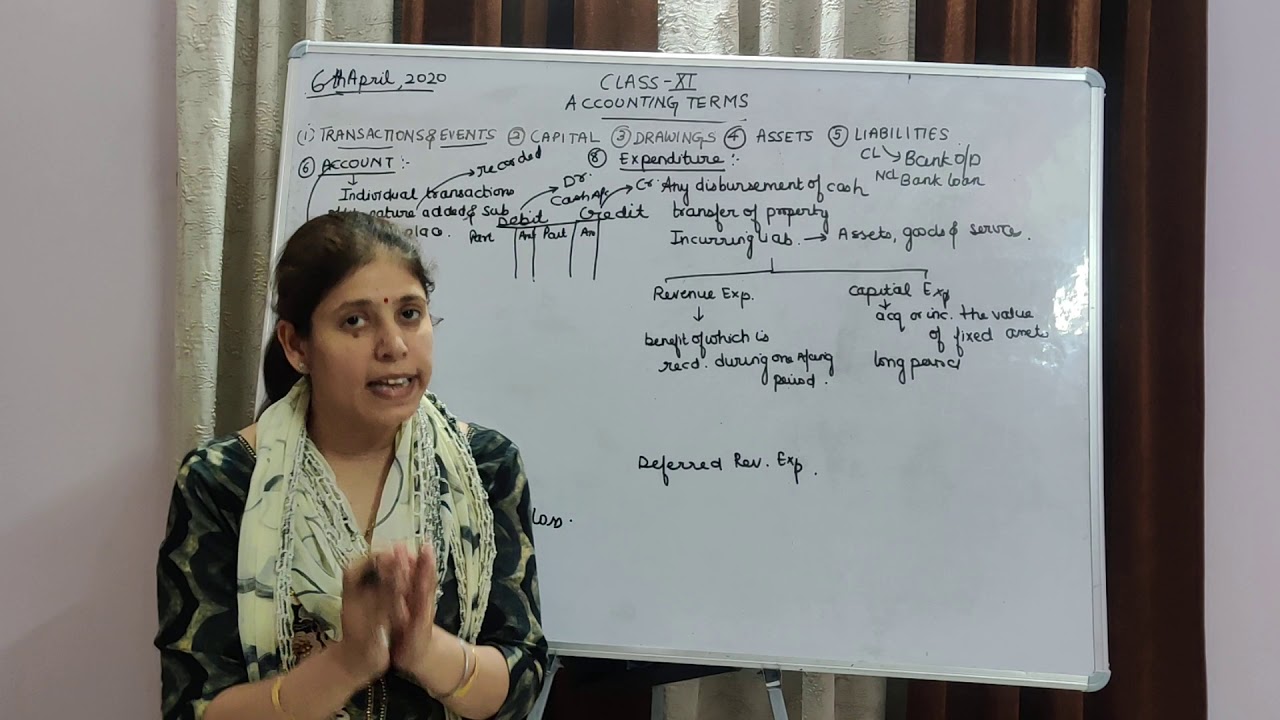 6th April, 2020
CLASS-XI
ACCOUNTING TERMS
(i) TRANSACTIONS & EVENTS ② CAPITAL ③ DRAWINGS ④ ASSETS ⑤ LIABILITIES
CL → Bank o/D
NCL Bank loan
⑥ ACCOUNT :-
→ recorded
↓
Individual transactions
nature added & sub
Dr.
Cash A/c
Cr.
Debit Credit
Part Amt Part Am
⑧ Expenditure :-
Any disbursement of cash
transfer of property
Incurring Liab. → Assets, goods & service.
Revenue Exp.
↓
benefit of which is
recd. during one A/cing
period.
Capital Exp
↓
acq or inc. the value
of fixed assets
long period
Deferred Rev. Exp.
loss.